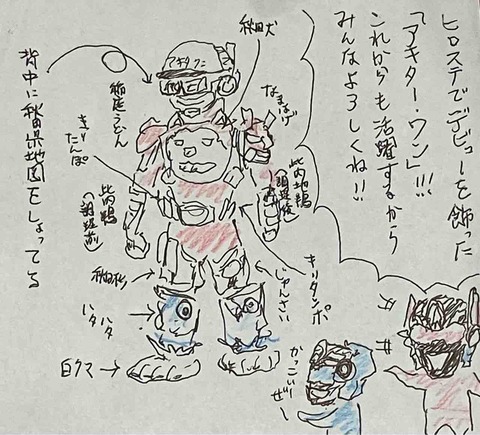 ヒロステでデビューを飾った
「アキター・ワン」!!!
これからも活躍するから
みんなよろしくね!!
秋田犬
なまはげ
比内地鶏
(調理後)
キリタンポ
じゅんさい
アキタワン
稲庭うどん
きりたんぽ
比内鶏
(調理前)
秋田杉
ハタハタ
白クマ
背中に秋田県地図をしょってる
かっこいーぜー